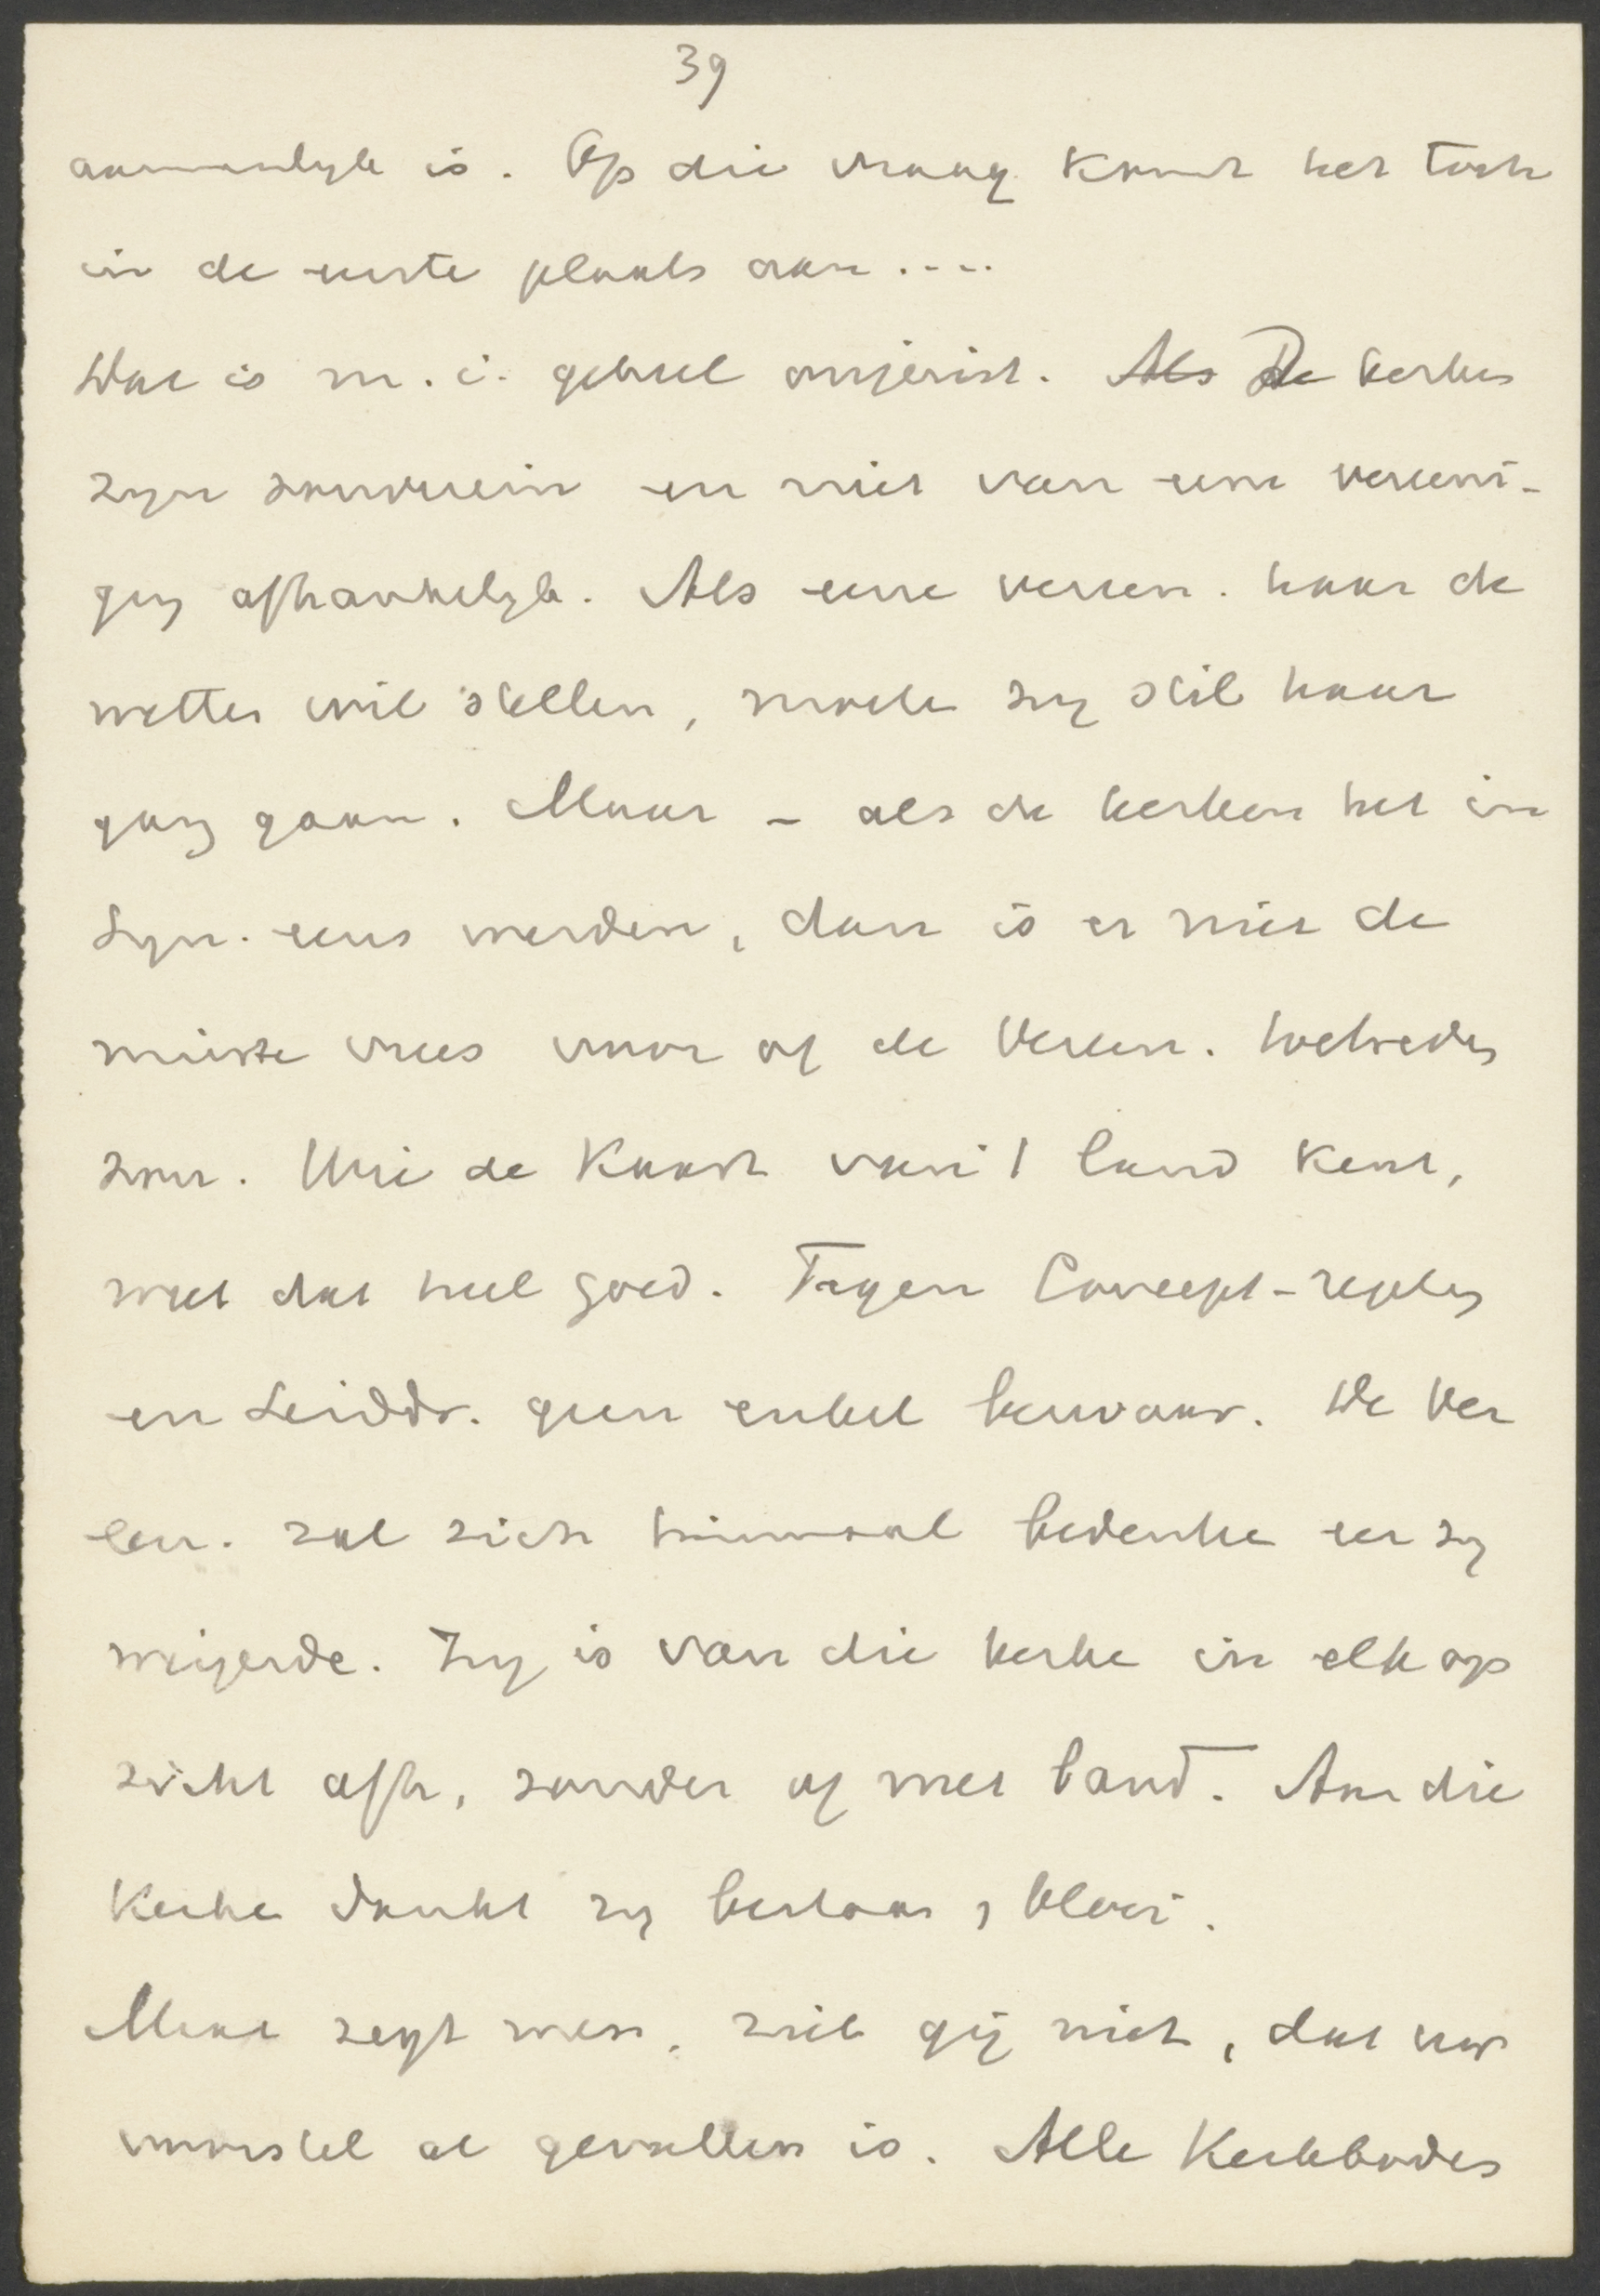 39
aannemelyk is. Op die vraag komt het toch
in de eerste plaats aan....
Dat is m.i. geheel onjuist. Als De kerken
zyn souverein en niet van eene vereeni-
ging afhankelyk. Als eene vereen. haar de
wetten wil stellen, moeten zy stil haar
gang gaan. Maar - als de kerken het in
Syn. eens werden, dan is er niet de
minste vrees voor of de Vereen. toetreden
zou. Wie de Kaart van 't land kent,
weet dat heel goed. Tegen Concept-regeling
en Leiddr. geen enkel bezwaar. De Ver
een. zal zich tienmaal bedenken eer zy
weigerde. Zy is van die kerken in elk op
zicht afh, zonder of met band. Aan die
Kerken dankt zy bestaan & bloei.
Maar zegt men, ziet gij niet, dat uw
voorstel al gevallen is. Alle Kerkbodes